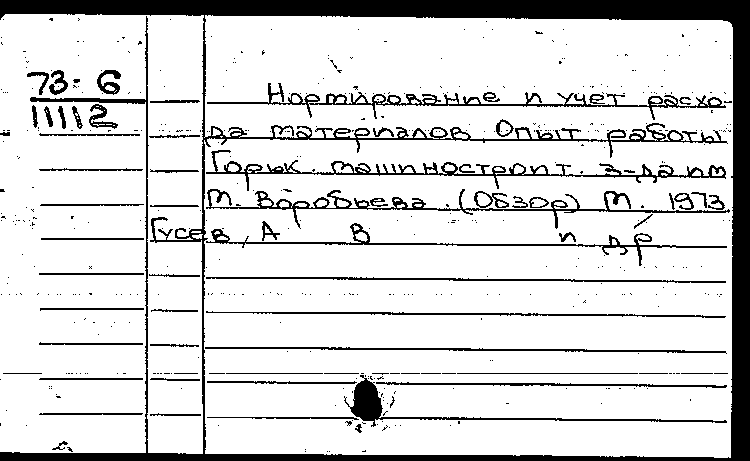 73-6
11112
Нормирование и учет расхо-
да материалов. Опыт работы
Горьк. машиностроит. з-да им.
М. Воробьева. (Обзор) М. 1973
Гусев, А В и др